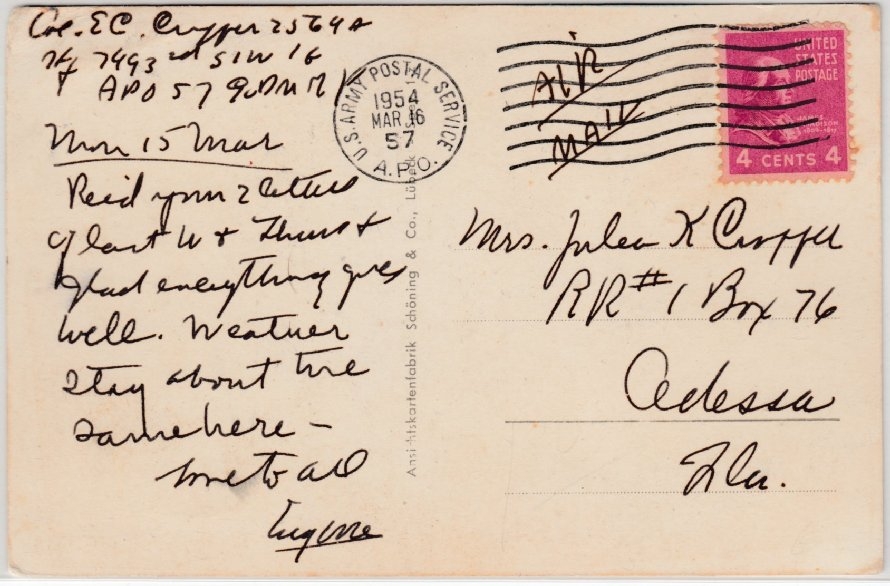 Col. E C. Cropper 25694A
7493rd
APO 57 % PM N Y
Mon 15 Mar
Rec'd your 2 letters
of last W & Thurs &
glad everything goes
well. Weather
stay about the
same here –
Love to all
Eugene
U.S. ARMY POSTAL SERVICE
1954
MAR 16
57
A.P.O.
AIR
MAIL
UNITED
STATES
POSTAGE
JAMES
MADISON
4 CENTS 4
Ansichtskartenfabrik Schöning & Co., Lübeck
Mrs. Julea K Cropper
RR# 1 Box 76
Odessa
Fla.